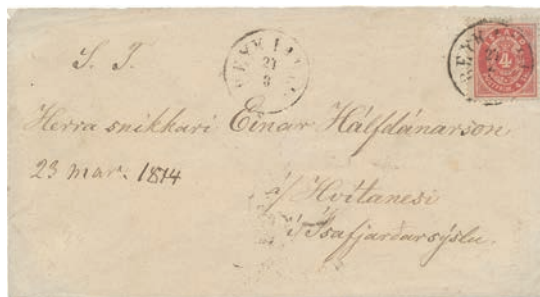 S. T.
REYKJAVIK
23
3
4
Herra snikkari Einar Hálfdánarson
23 mar. 1874
á/ Hvítanesi
í Ísafjarðarsýslu.